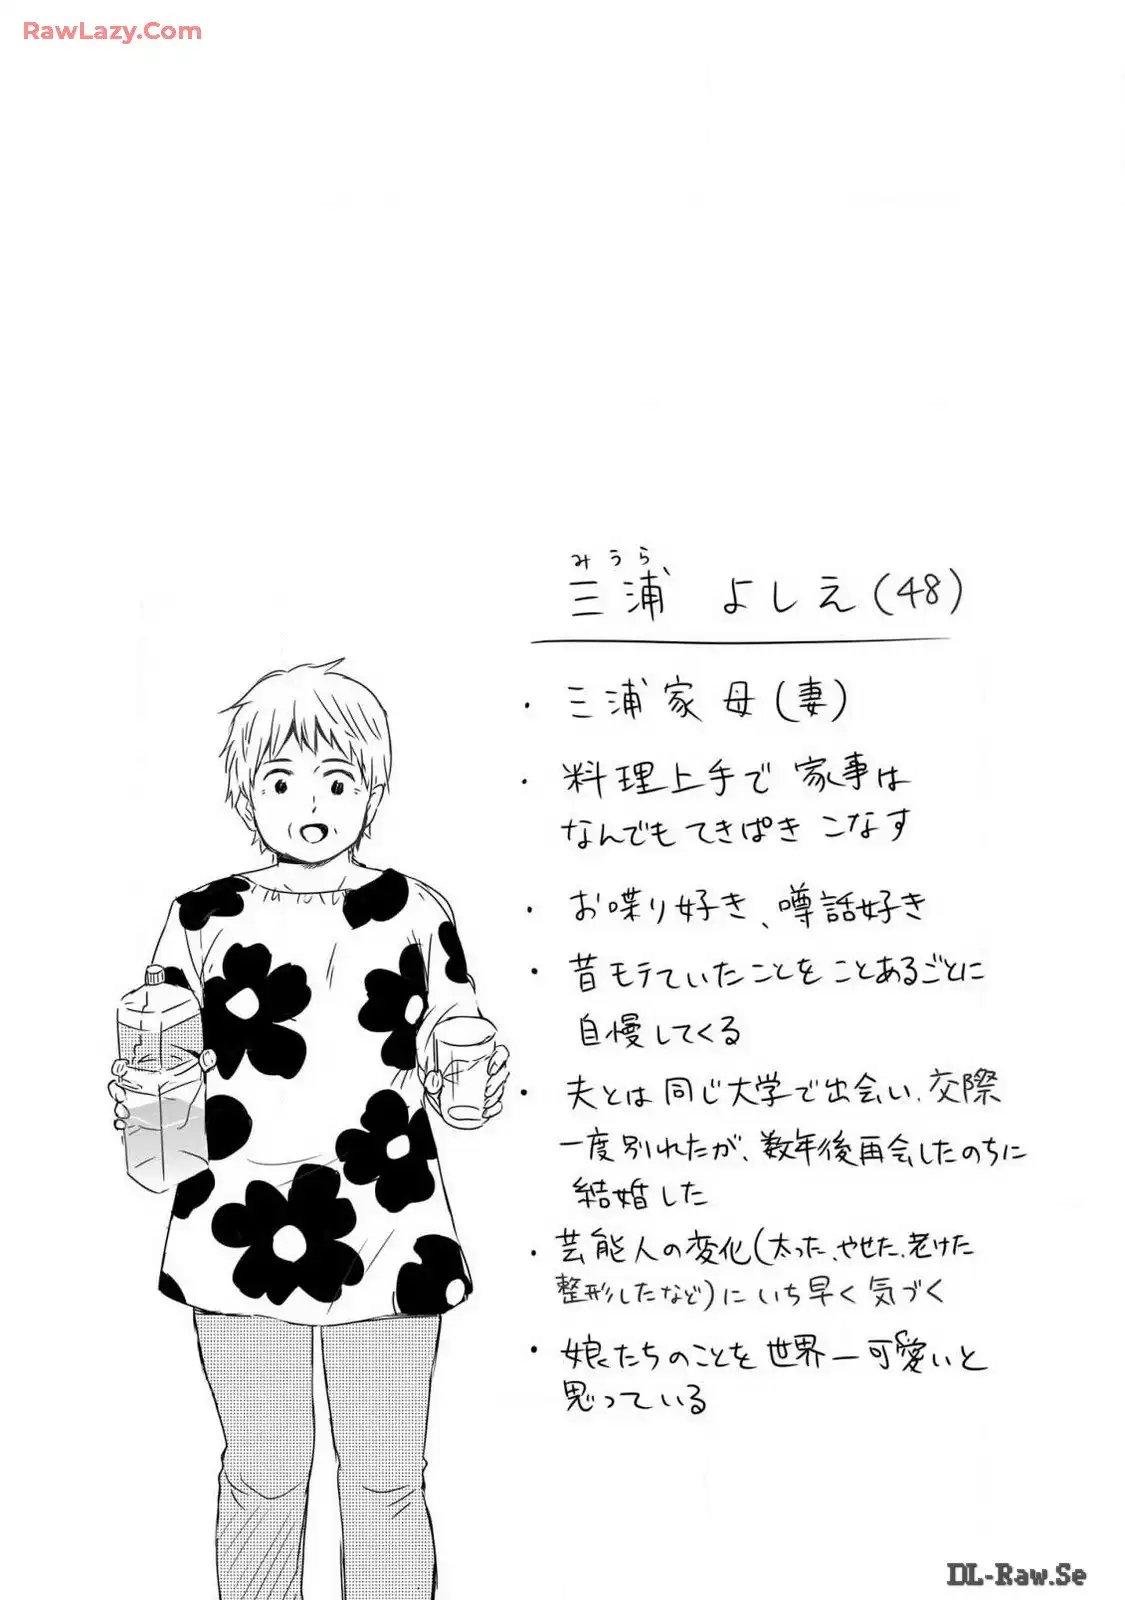 RawLazy.Com
みうら
三浦 よしえ(48)
・三浦家 母(妻)
・料理上手で 家事は
なんでも てきぱき こなす
・お喋り好き、噂話好き
・昔モテていたことを ことあるごとに
自慢してくる
・夫とは 同じ大学で出会い、交際
一度別れたが、数年後再会したのちに
結婚した
・芸能人の変化(太った、やせた、老けた
整形したなど)に いち早く 気づく
・娘たちのことを 世界一可愛いと
思っている
DL-Raw.Se